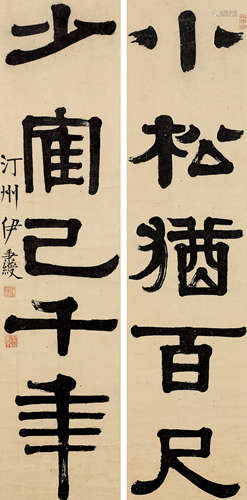 小松猶百尺
少寉已千年
汀州伊秉綬